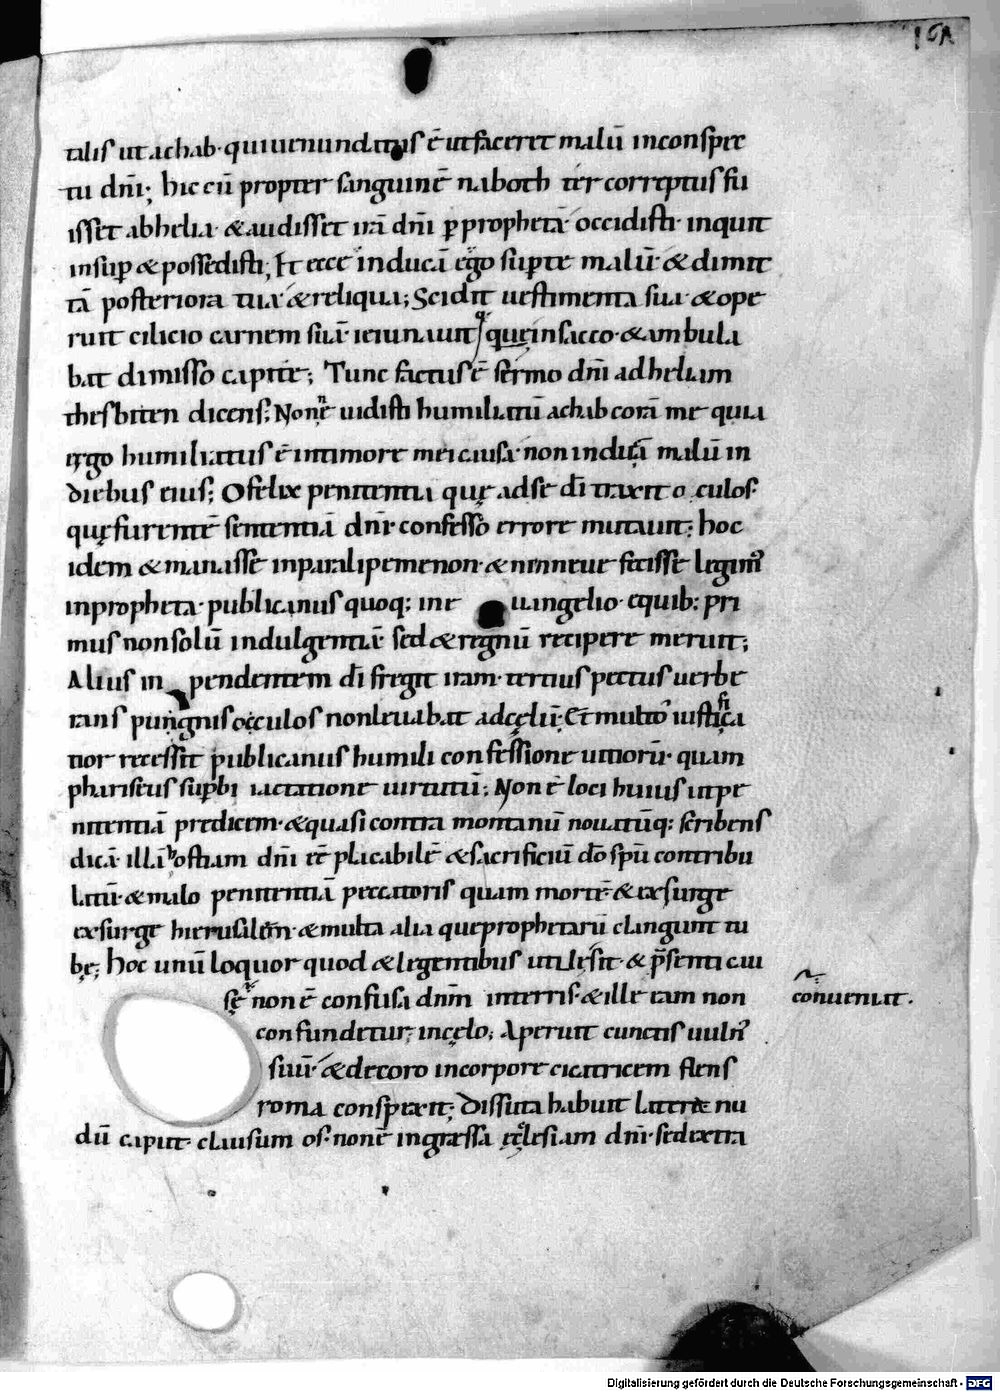 161
talis ut achab· qui uenundatus ē ut faceret malū inconspec
tu dn̄i; hic cū propter sanguinē naboth ter correptus fu
isset abhelia· & audisset irā dn̄i p prophetā· occidisti· inquit
insup & possedisti; Et ecce inducā ego supte malū· & dimit
tā posteriora tua· & reliqua; Scidit uestimenta sua· & ope
ruit cilicio carnem suā· ieiunauit q; quęinsacco· & ambula
bat dimisso capite; Tunc factus ē sermo dn̄i adheliam
thesbiten dicens; Nonne uidisti humiliatū achab corā me quia
ergo humiliatus ē intimore mei causa· non inducā malū in
diebus eius; O felix penitentia quę adse dī traxit o culos·
quę furentē sententiā dn̄i· confesso errore mutauit; hoc
idem & manasse inparalipemenon· & nineue fecisse legim᾿
inpropheta· publicanus quoq; in e uangelio· equib; pri
mus nonsolū indulgentiā sed & regnū recipere meruit;
Alius in pendentem dī fregit iram· tertius pectus uerbe
rans pungnis occulos nonleuabat adcęlū· Et multo iustifica
tior recessit publicanus humili confessione uitiorū· quam
phariseus supbi iactatione uirtutū; Non ē loci huius ut pe
nitentiā predicem· & quasi contra montanū nouatūq; scribens
dicā· illā hostiam dn̄i eē placabilē & sacrificiū dō spū contribu
latū· & malo penitentiā peccatoris quam mortē· & exsurge
exsurge hierusalem· & multa alia que prophetarū clangunt tu
bę; hoc unū loquor quod & legentibus utile sit· & p̄senti cau
sę· non ē confusa dnm̄ interris· & ille eam non
conueniat·
confundetur incęlo; Aperuit cunctis uuln᾿
suū· & decoro incorpore cicatricem flens
roma conspexit; Dissuta habuit latera nu
dū caput· clausum os· non ē ingressa ęcclesiam dn̄i· sedextra
Digitalisierung gefördert durch die Deutsche Forschungsgemeinschaft - DFG